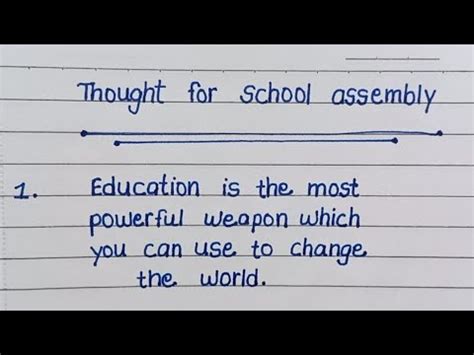 Thought for school assembly
1. Education is the most
powerful weapon which
you can use to change
the world.